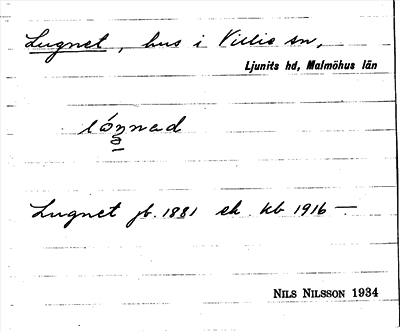 Lugnet, hus i Villie sn,
Ljunits hd, Malmöhus län
Lugnet jb. 1881 ek. kb 1916 —
NILS NILSSON 1934